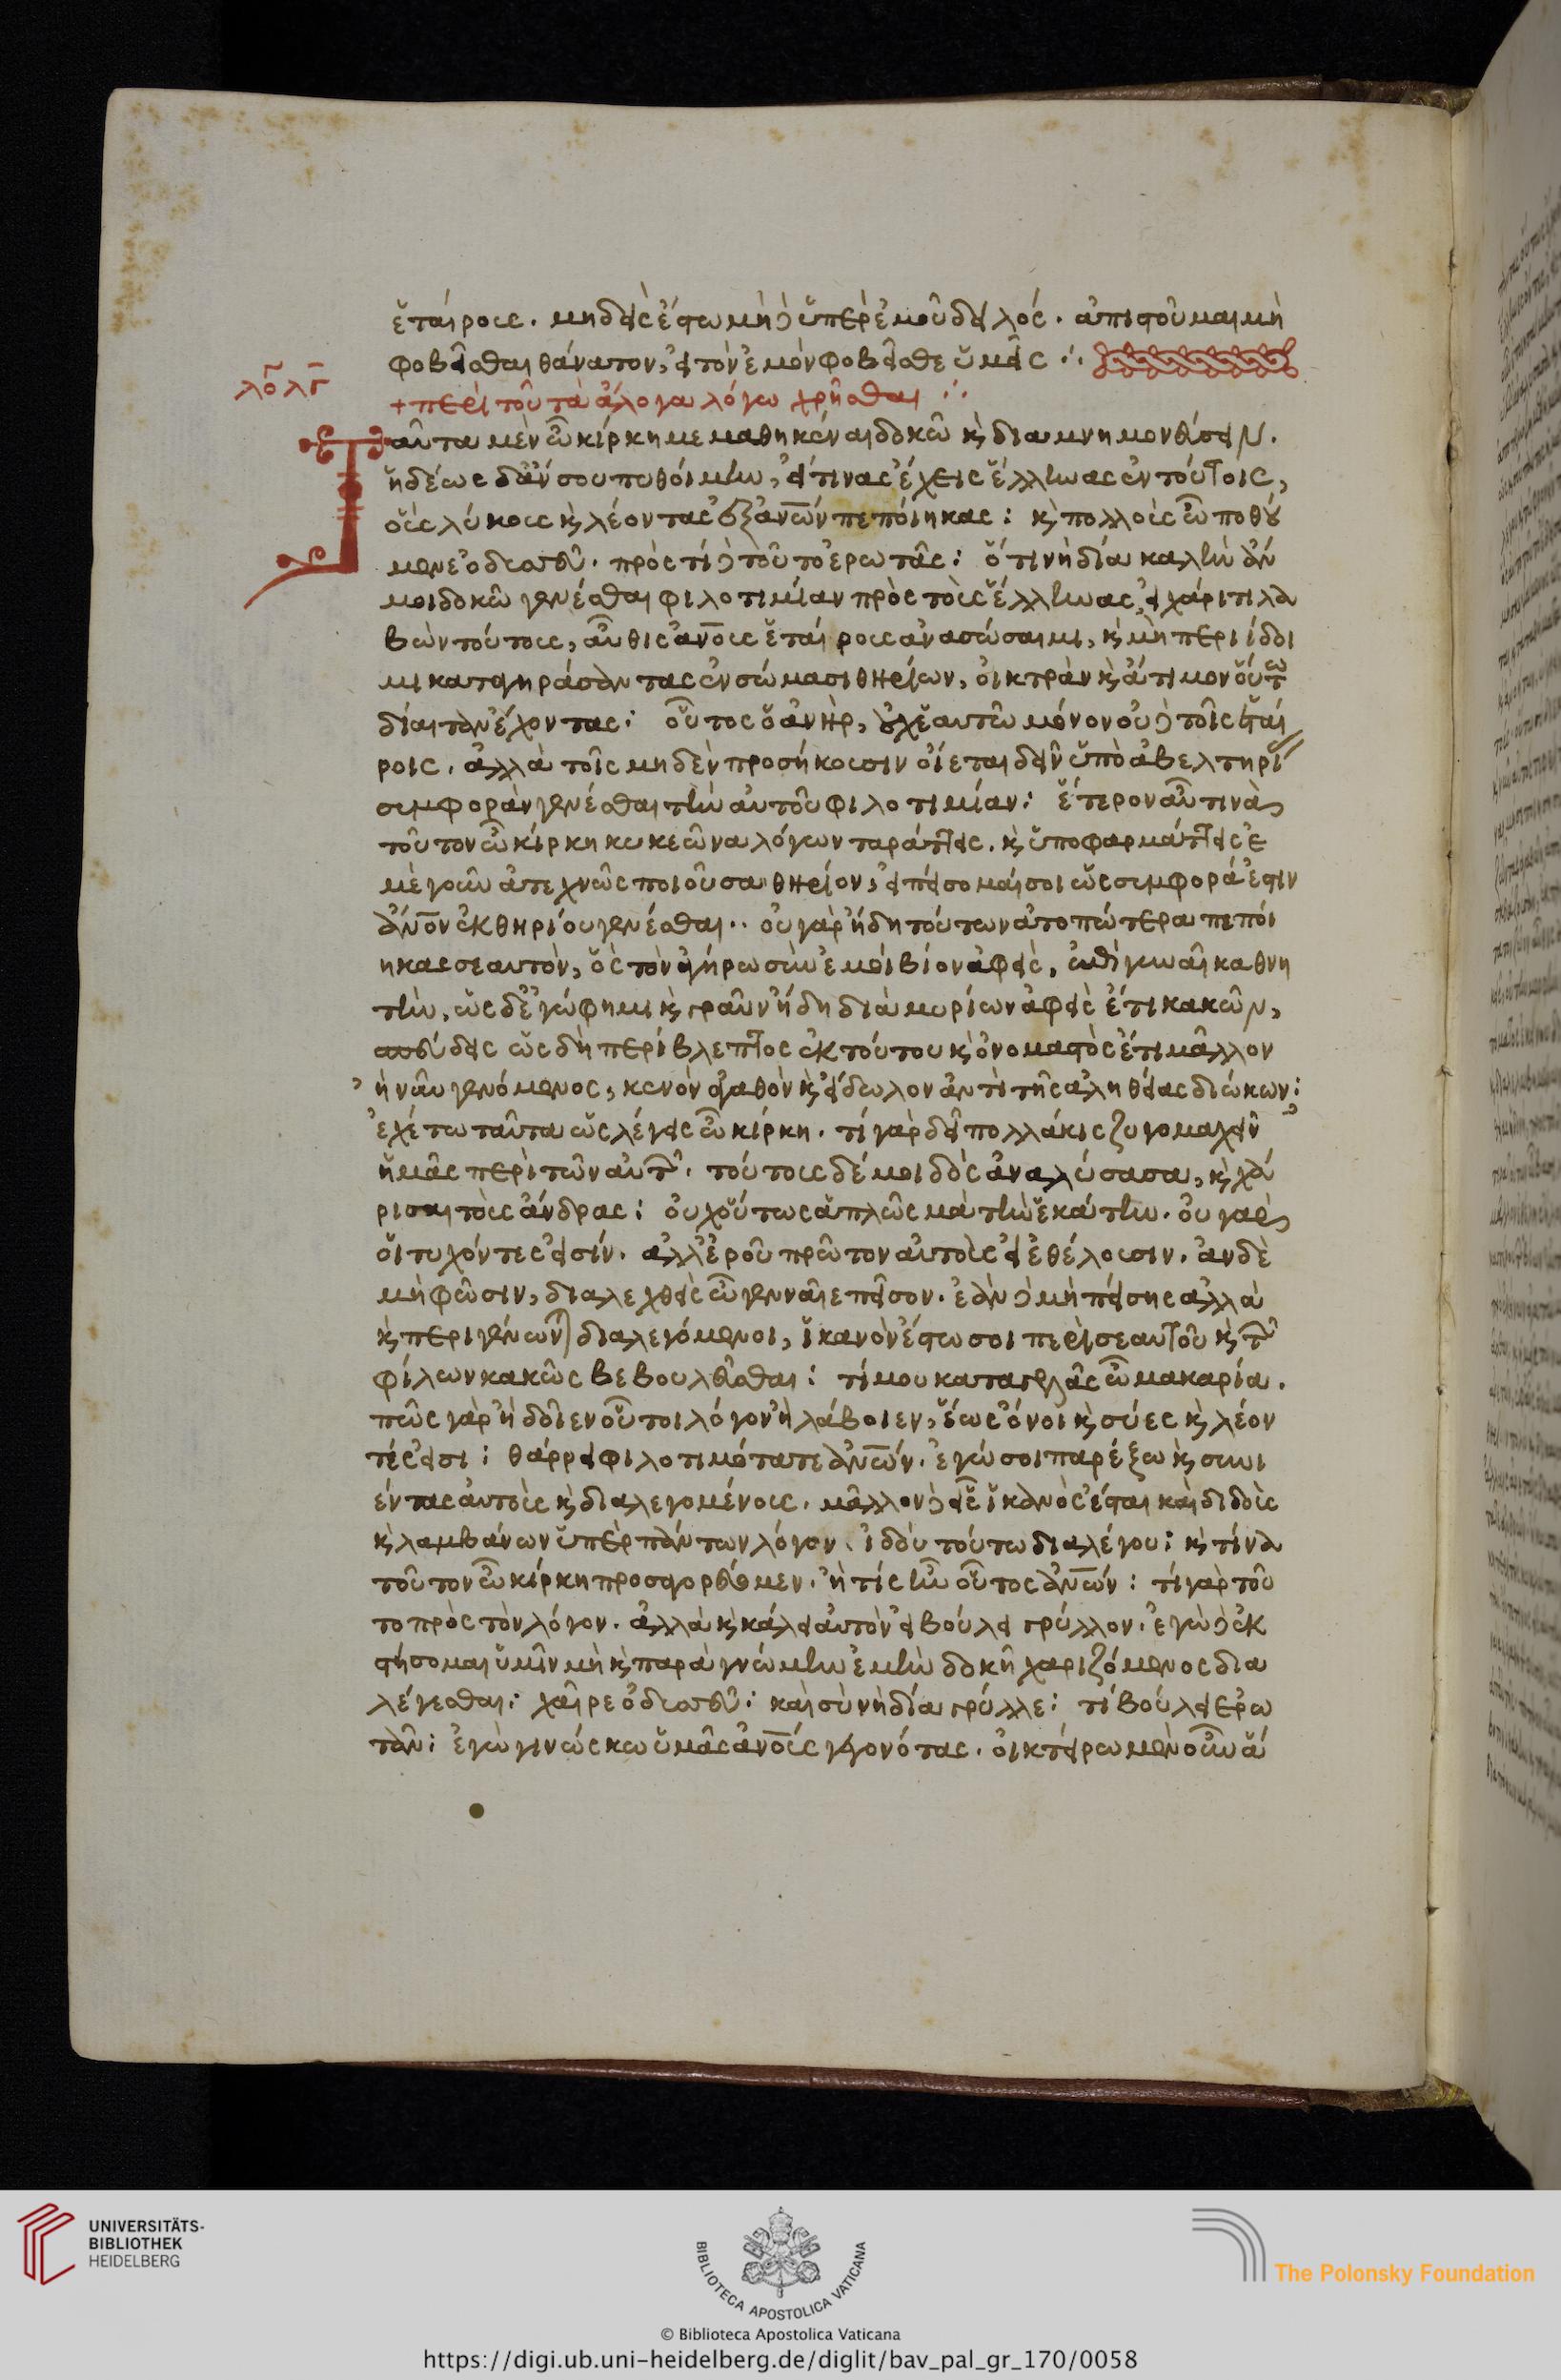 ἑταίρους. μηδεὶς ἔστω μὴ δ' ὑπὲρ ἐμοῦ δειλός. ἀπιστοῦμαι μὴ
φοβεῖσθαι θάνατον, εἰ τὸν ἐμὸν φοβεῖσθε ὑμεῖς ∴
λο λγ
+ περὶ τοῦ τὰ ἄλογα λόγω χρῆσθαι ∴
Ταῦτα μὲν ὦ κίρκη μεμαθηκέναι δοκῶ κὶ διαμνημονεύσειν.
ἡδέως δ' ἄν σου πυθοίμην, εἴ τινας ἔχεις ἕλληνας ἐν τούτοις,
οὓς λύκους κὶ λέοντας ἐξ ἀνων πεποίηκας: κὶ πολλοὺς ὦ ποθού
μενε ὀδυσσεῦ. πρὸς τί δὲ τοῦτο ἐρωτᾶς: ὅτι νὴ δία καλὴν ἄν
μοι δοκῶ γενέσθαι φιλοτιμίαν πρὸς τοὺς ἕλληνας, εἰ χάριτι λα
βὼν τούτους, αὖθις ἀνους ἑταίρους ἀνασώσαιμι, κὶ μὴ περιίδοι
μι καταγηράσαντας ἐν σώμασι θηρίων, οἰκτρὰν κὶ ἄτιμον οὕτω
δίαιταν ἔχοντας: οὗτος ὁ ἀνὴρ, οὐχ ἑαυτῶ μόνον οὐδὲ τοῖς ἑταί
ροις. ἀλλὰ τοῖς μηδὲν προσήκουσιν οἴεται δεῖν ὑπὸ ἀβελτηρί
συμφορὰν γενέσθαι τὴν αὐτοῦ φιλοτιμίαν: ἕτερον αὖ τινὰ
τοῦτον ὦ κίρκη κυκεῶνα λόγων ταράττεις. κὶ ὑποφαρμάττεις ἐ
μὲ γοῦν ἀτεχνῶς ποιοῦσα θηρίον, εἰ πείσομαί σοι ὡς συμφορά ἐστιν
ἄνον ἐκ θηρίου γενέσθαι.. οὐ γὰρ ἤδη τούτων ἀτοπώτερα πεπόι
ηκας σεαυτὸν, ὃς τὸν ἀγήρω σὺν ἐμοὶ βίον ἀφεὶς, ἐπὶ γυναῖκα θνη
τὴν, ὡς δ' ἐγώ φημι κὶ γραῦν ἤδη διὰ μυρίων ἀφεὶς ἔτι κακῶν,
σπεύδεις ὡς δὴ περίβλεπτος ἐκ τούτου κὶ ὀνομαστὸς ἔτι μᾶλλον
ἢ νῦν γενόμενος, κενὸν ἀγαθὸν κὶ εἴδωλον ἀντὶ τῆς ἀληθείας διώκων:
ἐχέτω ταῦτα ὡς λέγεις ὦ κίρκη. τί γὰρ δεῖ πολλάκις ζυγομαχεῖν
ἡμᾶς περὶ τῶν αὐτῶν. τούτους δέ μοι δὸς ἀναλύσασα, κὶ χά
ρισαι τοὺς ἄνδρας: οὐχ οὕτως ἁπλῶς μὰ τὴν ἑκάτην. οὐ γὰρ
οἱ τυχόντες εἰσίν. ἀλλ' ἐροῦ πρῶτον αὐτοὺς εἰ ἐθέλουσιν. ἂν δὲ
μὴ φῶσιν, διαλεχθεὶς ὦ γενναῖε πεῖσον. ἐὰν δὲ μὴ πείσης ἀλλὰ
κὶ περιγένωνται διαλεγόμενοι, ἱκανὸν ἔστω σοι περὶ σεαυτοῦ κὶ τῶν
φίλων κακῶς βεβουλεῦσθαι: τί μου καταγελᾶς ὦ μακαρία.
πῶς γὰρ ἢ δοῖεν οὗτοι λόγον ἢ λάβοιεν, ἕως ὄνοι κὶ σύες κὶ λέον
τές εἰσι: θάρρει φιλοτιμότατε ἀνων. ἐγώ σοι παρέξω κὶ συνι
έντας αὐτοὺς κὶ διαλεγομένους. μᾶλλον δὲ εἷς ἱκανὸς ἔσται καὶ διδοὺς
κὶ λαμβάνων ὑπὲρ πάντων λόγον. ἰδοὺ τούτω διαλέγου: κὶ τίνα
τοῦτον ὦ κίρκη προσαγορεύσομεν. ἢ τίς ἦν οὗτος ἀνων: τί γὰρ τοῦ
το πρὸς τὸν λόγον. ἀλλὰ κὶ κάλει αὐτὸν εἰ βούλει γρύλλον. ἐγὼ δὲ ἐκ
στήσομαι ὑμῖν μὴ κὶ παρὰ γνώμην ἐμὴν δοκῆ χαριζόμενος δια
λέγεσθαι: χαῖρε ὀδυσσεῦ: καὶ σὺ νὴ δία γρύλλε: τί βούλει ἐρω
τᾶν: ἐγὼ γινώσκω ὑμᾶς ἀνους γεγονότας. οἰκτείρω μὲν οὖν ἅ
UNIVERSITÄTS-
BIBLIOTHEK
HEIDELBERG
BIBLIOTECA APOSTOLICA VATICANA
The Polonsky Foundation
© Biblioteca Apostolica Vaticana
https://digi.ub.uni-heidelberg.de/diglit/bav_pal_gr_170/0058